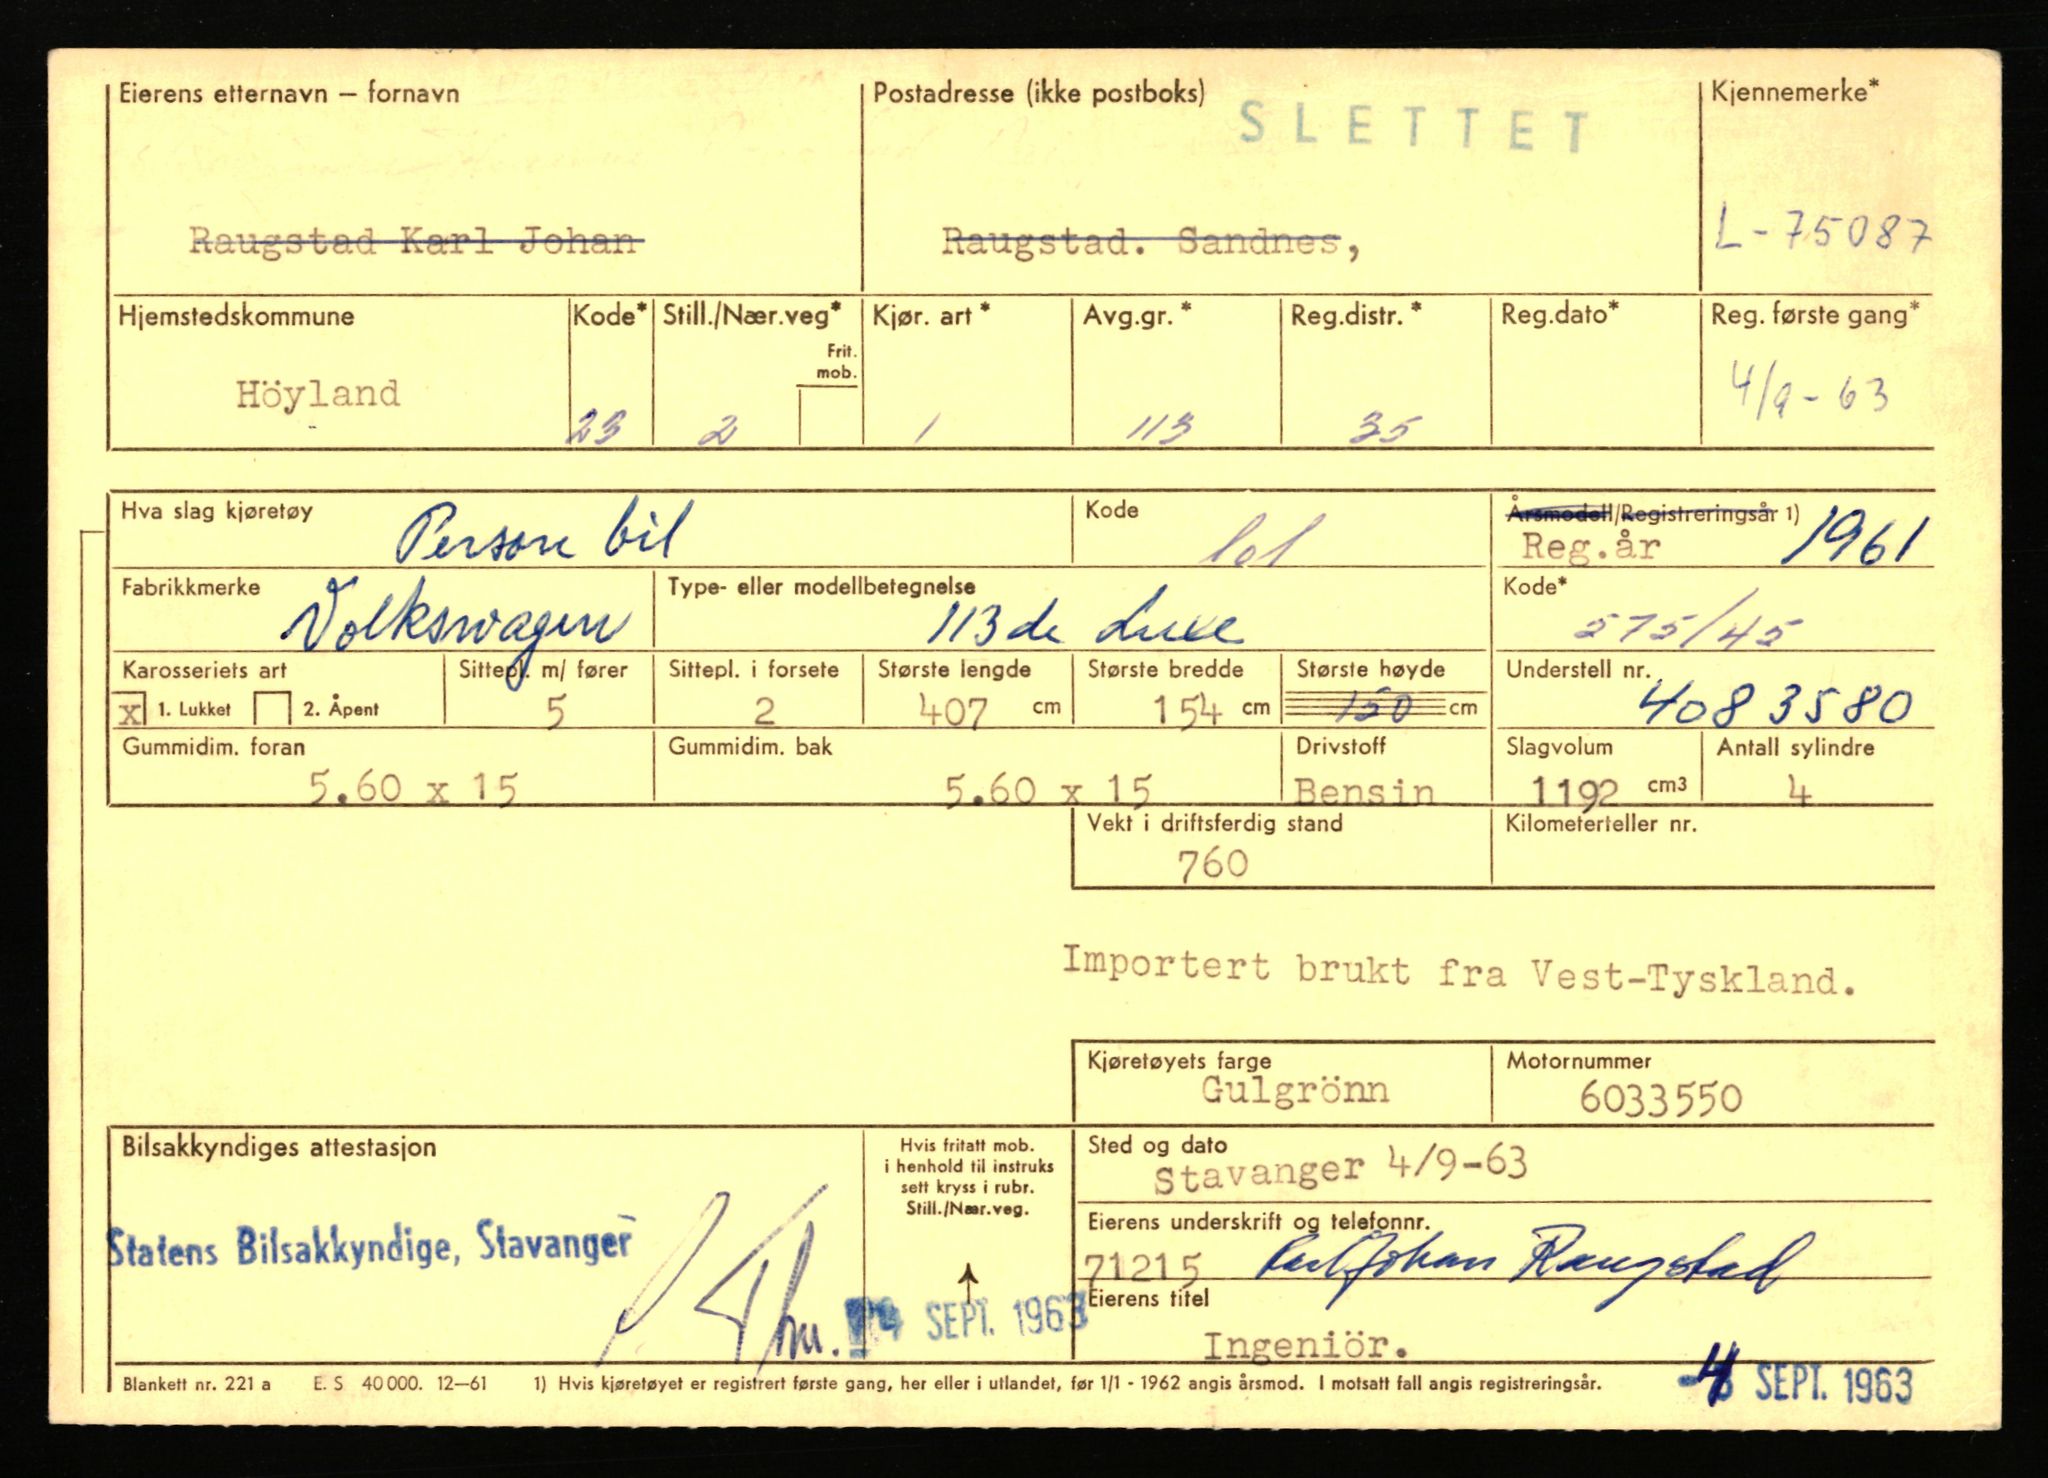 Eierens etternavn – fornavn
Postadresse (ikke postboks)
SLETTET
Kjennemerke*
Raugstad Karl Johan
Raugstad. Sandnes,
L-75087
Hjemstedskommune
Kode*
Still./Nær.veg*
Frit.
mob.
Kjør. art *
Avg.gr. *
Reg.distr. *
Reg.dato*
Reg. første gang*
Höyland
23
2
1
113
35
4/9-63
Hva slag kjøretøy
Person bil
Kode
101
Årsmodell/Registreringsår 1)
Reg.år
1961
Fabrikkmerke
Volkswagen
Type- eller modellbetegnelse
113 de Luxe
Kode*
575/45
Karosseriets art
x 1. Lukket 2. Åpent
Sittepl. m/ fører
5
Sittepl. i forsete
2
Største lengde
407 cm
Største bredde
154 cm
Største høyde
150 cm
Understell nr.
4083580
Gummidim. foran
5.60 x 15
Gummidim. bak
5.60 x 15
Drivstoff
Bensin
Slagvolum
1192 cm3
Antall sylindre
4
Vekt i driftsferdig stand
760
Kilometerteller nr.
Importert brukt fra Vest-Tyskland.
Kjøretøyets farge
Gulgrönn
Motornummer
6033550
Bilsakkyndiges attestasjon
Statens Bilsakkyndige, Stavanger
Hvis fritatt mob.
i henhold til instruks
sett kryss i rubr.
Still./Nær.veg.
4 SEPT. 1963
Sted og dato
Stavanger 4/9-63
Eierens underskrift og telefonnr.
71215 Karl Johan Raugstad
Eierens titel
Ingeniör.
Blankett nr. 221 a E. S 40 000. 12—61 1) Hvis kjøretøyet er registrert første gang, her eller i utlandet, før 1/1 - 1962 angis årsmod. I motsatt fall angis registreringsår.
-4 SEPT. 1963